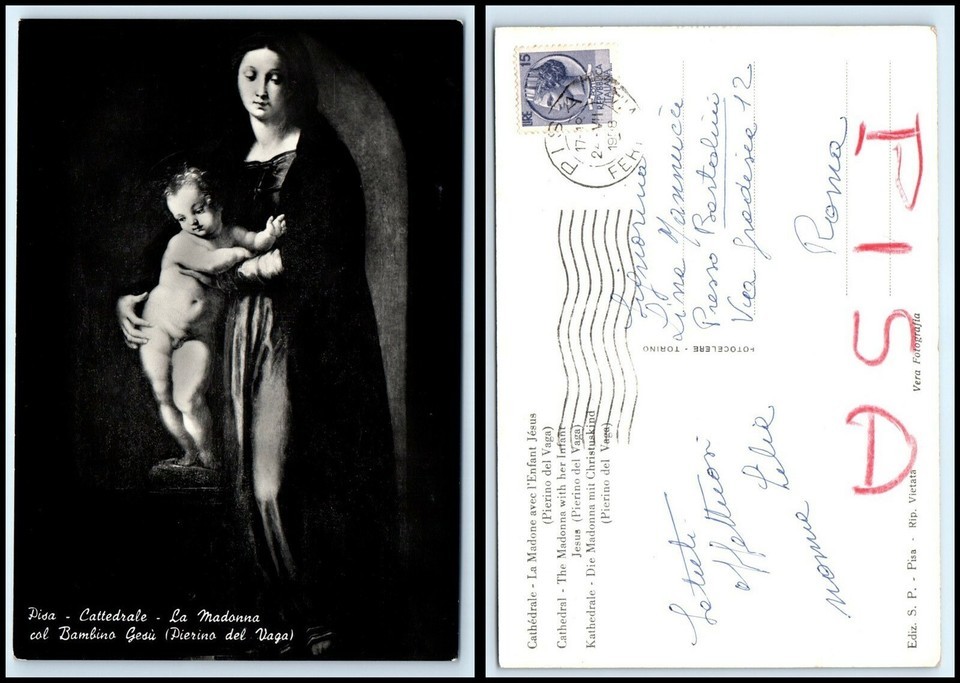 Pisa - Cattedrale - La Madonna
col Bambino Gesù (Pierino del Vaga)
Cathédrale - La Madone avec l'Enfant Jésus
(Pierino del Vaga)
Cathedral - The Madonna with her Infant
Jesus (Pierino del Vaga)
Kathedrale - Die Madonna mit Christuskind
(Pierino del Vaga)
Saluti
affettuosi
nonna Lelia
FOTOCELERE - TORINO
LIRE 15
REPVBBLICA
ITALIANA
PISA
17-18
2 VII
Signorina
Lina Vannucci
Presso Bartolini
Via Gradisca 12
Roma
PISA
Ediz. S. P. - Pisa - Rip. Vietata
Vera Fotografia